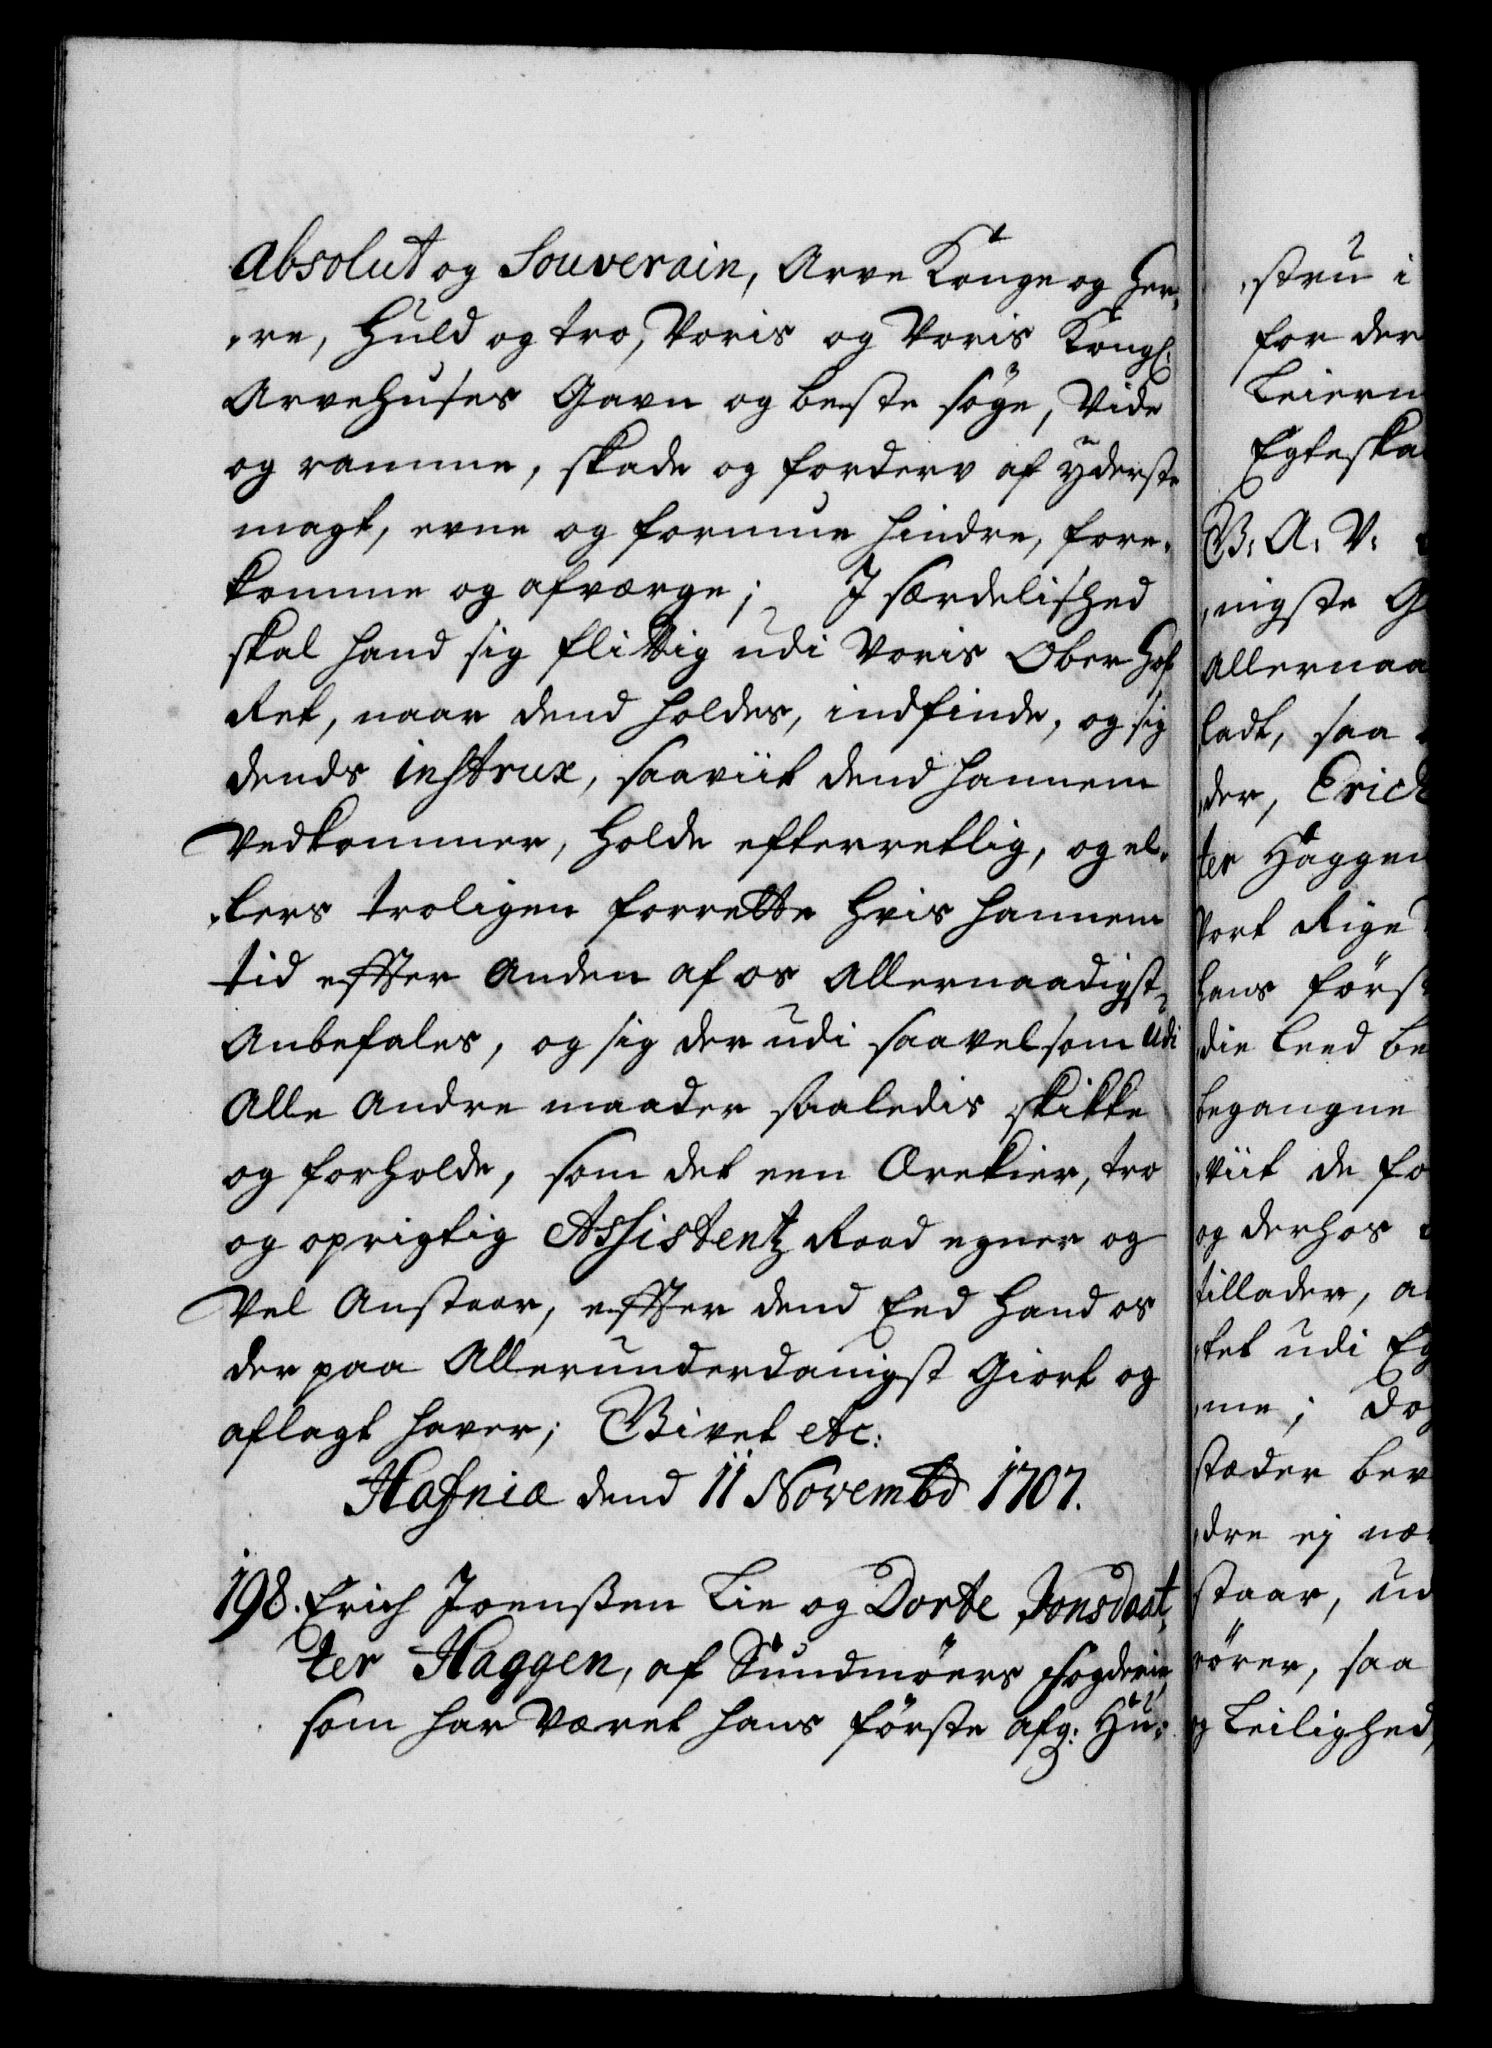 absolut og Souverain, Arve Konge og Her¬
¬re, Huld og tro, Voris og Voris Kongl:
Arvehuses Gavn og beste søge, Vide
og ramme, skade og forderv af yderste
magt, evne og formue hindre, fore¬
komme og afværge; J særdelished
skal hand sig flittig udi Voris Ober Hof
Ret, naar dend holdes, indfinde, og sig
dends instrux, saaviit dend hannem
Vedkommer, holde efterretlig, og el¬
¬lers troligen forrette hvis hannem
tid effter anden af os Allernaadigst
Anbefales, og sig der udi saavelsom udi
Alle Andre maader saaledis skikke
og forholde, som det een Ærekier, tro
og oprigtig Assistentz Raad egner og
Vel Anstaar, effter dend Eed hand os
der paa Allerunderdanigst Giort og
aflagt haver; Givet etc:
Hafniæ dend 11 Novembd 1707.
198. Erich Joenßen Lie og Dorte Jonsdaat¬
ter Haggen, af Sundmøers fogderie
som har Været hans første afg: Hu¬
¬stru i
for der
Leierm
Egteska
B: A: V:
¬nigste G
Allernaa
ladt, saa
der, Erich
ter Haggen
Vort Rige
hans først
die leed be
begangne
viit de fo
og derhos
tillader, a
¬tet udi Eg
¬me; Dog
stæder bev
¬dre ej næ
staar, ud
rører, saa
og Leilighed,